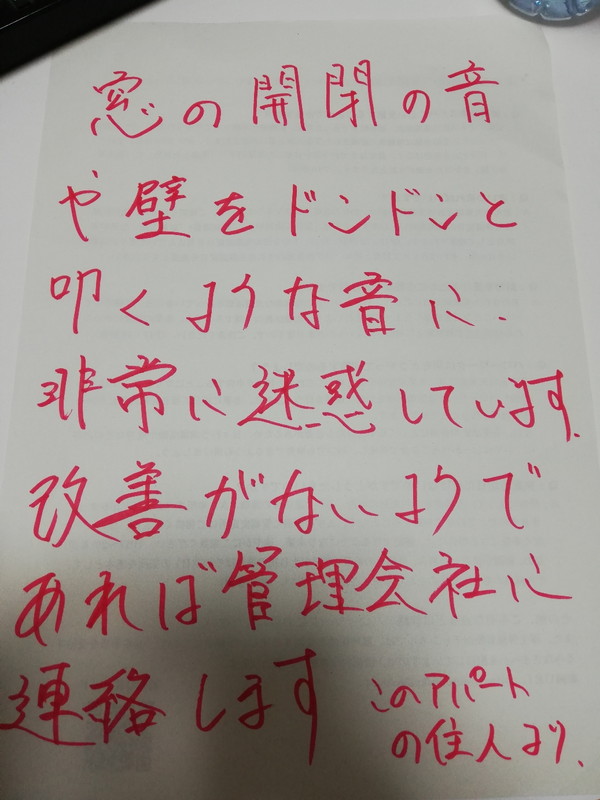 窓の開閉の音
や壁をドンドンと
叩くような音に、
非常に迷惑しています。
改善がないようで
あれば管理会社に
連絡します
このアパート
の住人より、